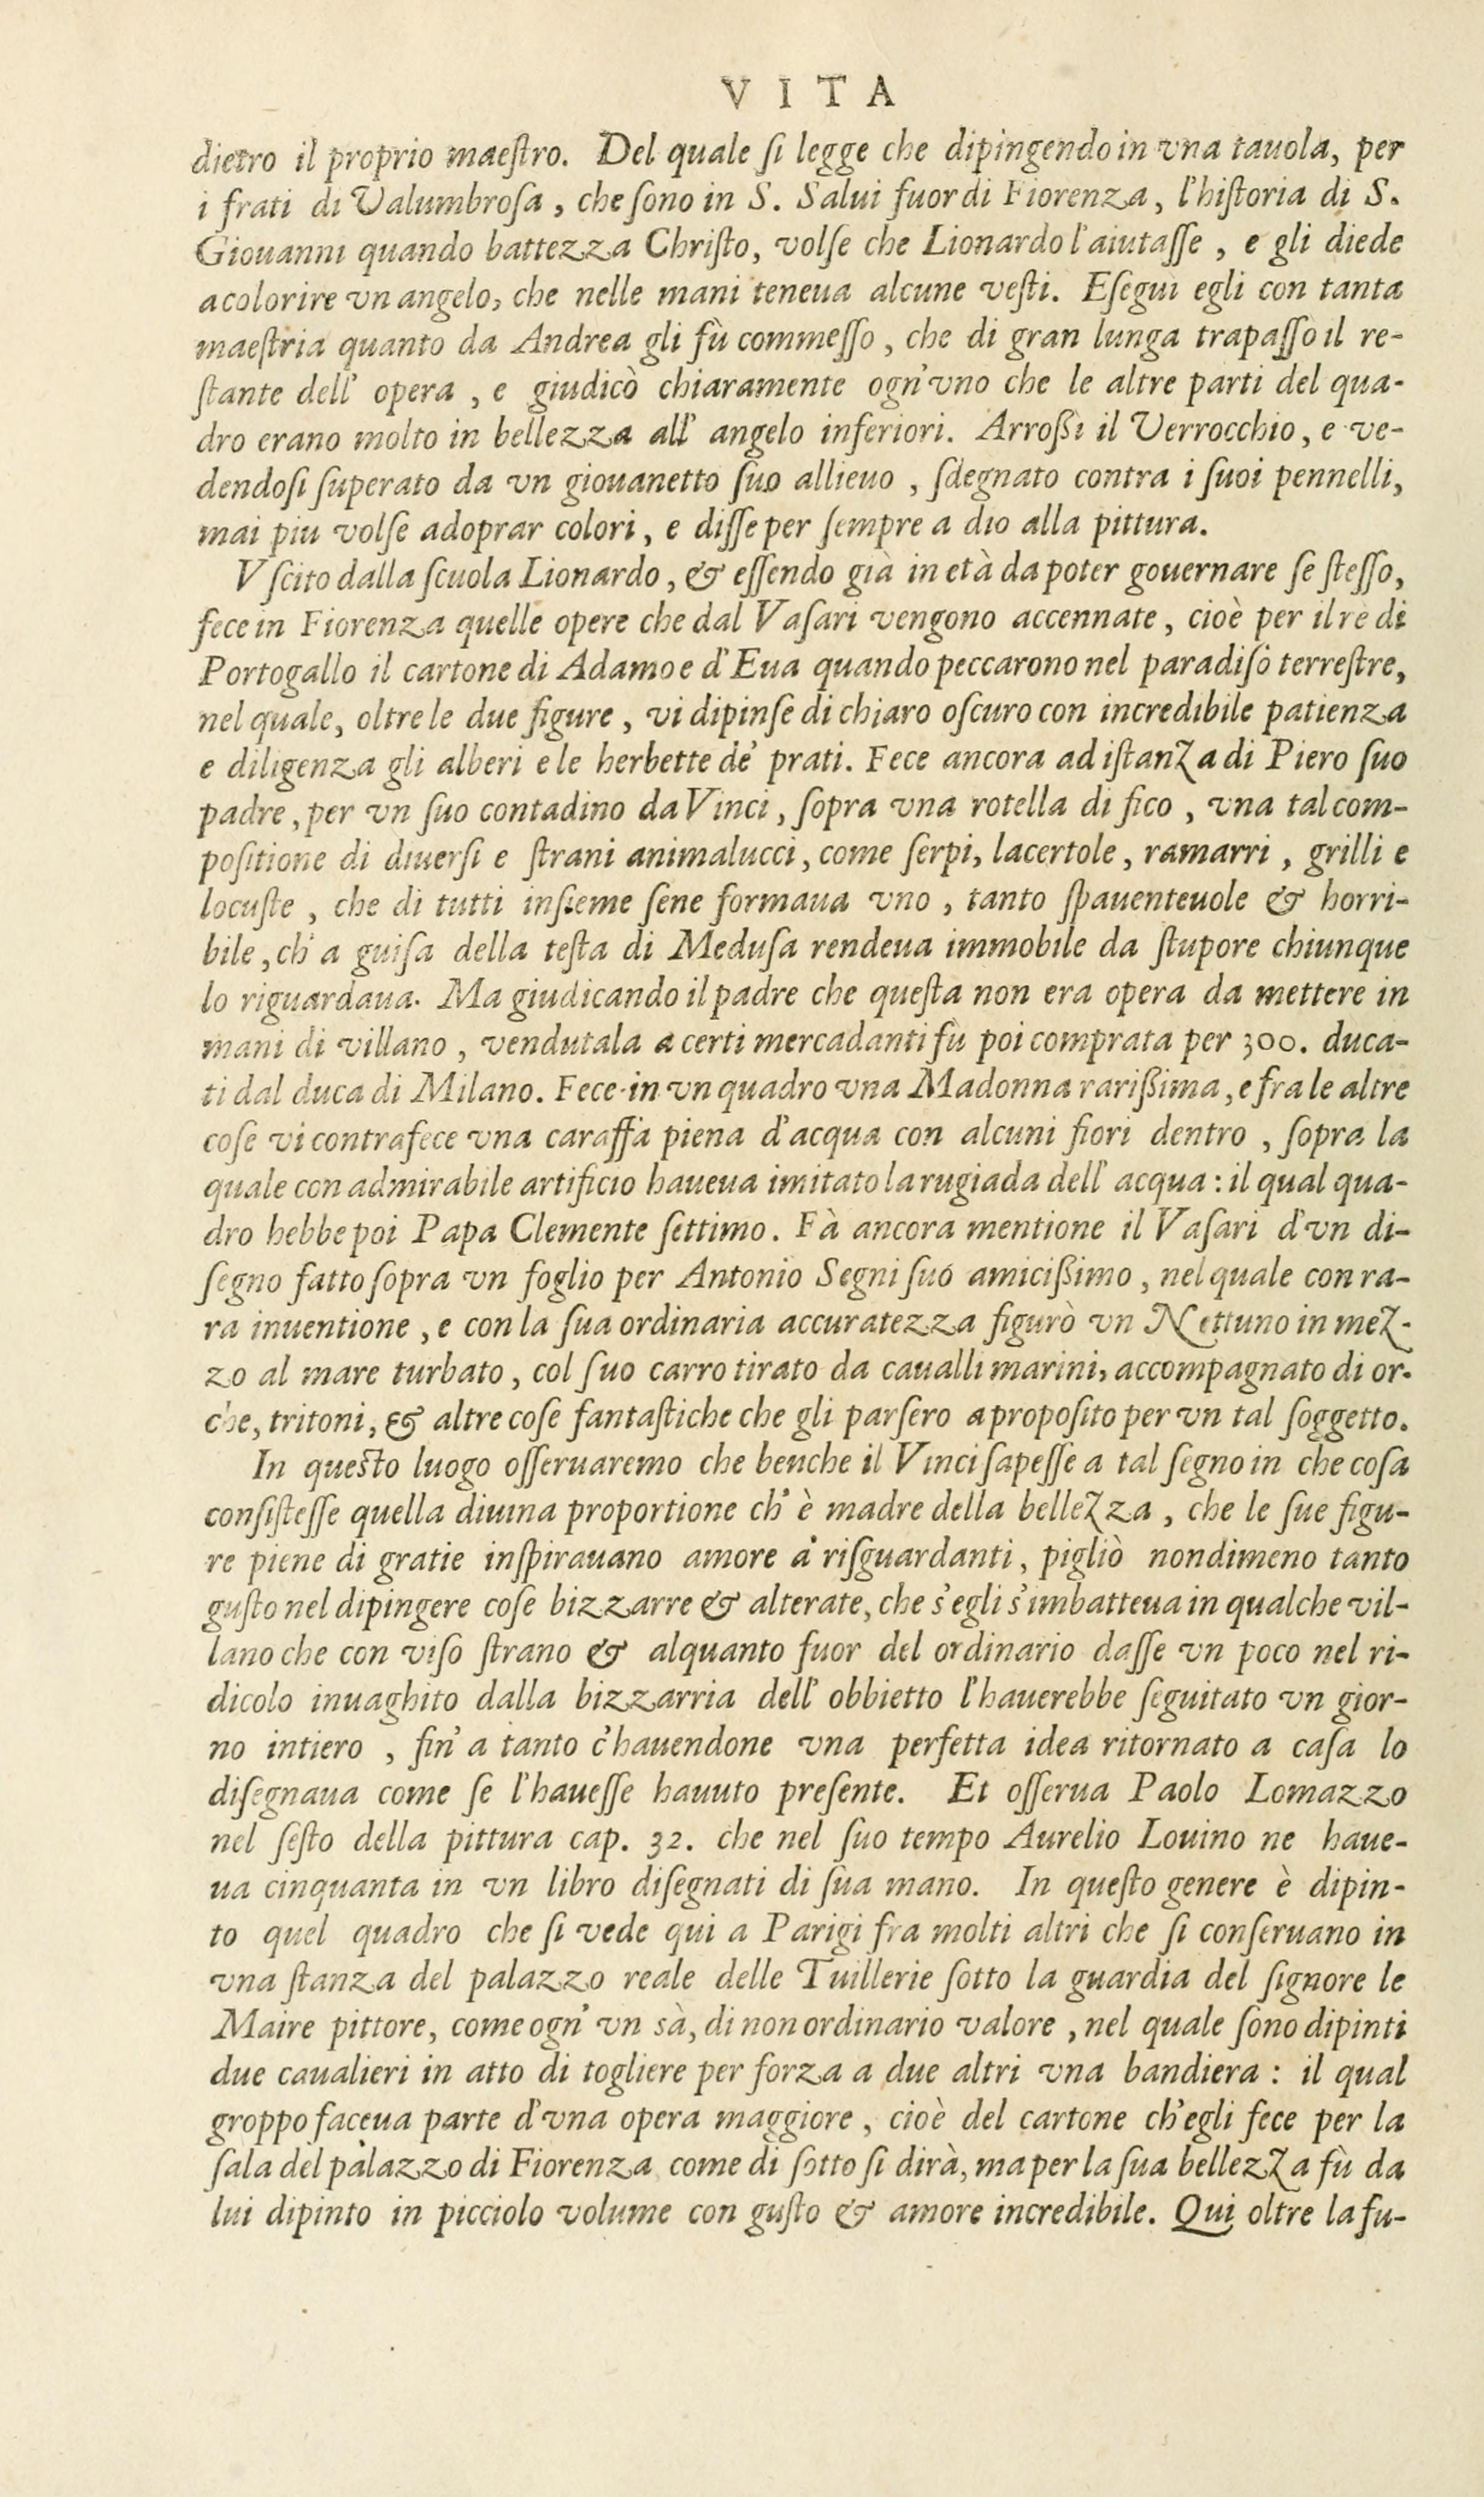 VITA
dietro il proprio maeſtro. Del quale ſi legge che dipingendo in vna tauola, per
i frati di Valumbroſa, che ſono in S. Salui fuor di Fiorenza, l'hiſtoria di S.
Giouanni quando battezza Chriſto, volſe che Lionardo l'aiutaſſe, e gli diede
a colorire vn angelo, che nelle mani teneua alcune veſti. Eſeguì egli con tanta
maeſtria quanto da Andrea gli fù commeſſo, che di gran lunga trapaſſò il re-
ſtante dell' opera, e giudicò chiaramente ogn'vno che le altre parti del qua-
dro erano molto in bellezza all' angelo inferiori. Arroßì il Verrocchio, e ve-
dendoſi ſuperato da vn giouanetto ſuo allieuo, ſdegnato contra i ſuoi pennelli,
mai piu volſe adoprar colori, e diſſe per ſempre a dio alla pittura.
Vſcito dalla ſcuola Lionardo, & eſſendo già in età da poter gouernare ſe ſteſſo,
fece in Fiorenza quelle opere che dal Vaſari vengono accennate, cioè per il rè di
Portogallo il cartone di Adamo e d'Eua quando peccarono nel paradiſo terreſtre,
nel quale, oltre le due figure, vi dipinſe di chiaro oſcuro con incredibile patienza
e diligenza gli alberi e le herbette de' prati. Fece ancora ad iſtanza di Piero ſuo
padre, per vn ſuo contadino da Vinci, ſopra vna rotella di fico, vna tal com-
poſitione di diuerſi e ſtrani animalucci, come ſerpi, lacertole, ramarri, grilli e
locuſte, che di tutti inſieme ſene formaua vno, tanto ſpauenteuole & horri-
bile, ch' a guiſa della teſta di Meduſa rendeua immobile da ſtupore chiunque
lo riguardaua. Ma giudicando il padre che queſta non era opera da mettere in
mani di villano, vendutala a certi mercadanti fù poi comprata per 300. duca-
ti dal duca di Milano. Fece in vn quadro vna Madonna rarißima, e fra le altre
coſe vi contrafece vna caraffa piena d'acqua con alcuni fiori dentro, ſopra la
quale con admirabile artificio haueua imitato la rugiada dell' acqua: il qual qua-
dro hebbe poi Papa Clemente ſettimo. Fà ancora mentione il Vaſari d'vn di-
ſegno fatto ſopra vn foglio per Antonio Segni ſuo amicißimo, nel quale con ra-
ra inuentione, e con la ſua ordinaria accuratezza figurò vn Nettuno in mez-
zo al mare turbato, col ſuo carro tirato da caualli marini, accompagnato di or-
che, tritoni, & altre coſe fantaſtiche che gli parſero a propoſito per vn tal ſoggetto.
In queſto luogo oſſeruaremo che benche il Vinci ſapeſſe a tal ſegno in che coſa
conſiſteſſe quella diuina proportione ch' è madre della bellezza, che le ſue figu-
re piene di gratie inſpirauano amore a' riſguardanti, pigliò nondimeno tanto
guſto nel dipingere coſe bizzarre & alterate, che s'egli s'imbatteua in qualche vil-
lano che con viſo ſtrano & alquanto fuor del ordinario daſſe vn poco nel ri-
dicolo inuaghito dalla bizzarria dell' obbietto l'hauerebbe ſeguitato vn gior-
no intiero, fin' a tanto c'hauendone vna perfetta idea ritornato a caſa lo
diſegnaua come ſe l'haueſſe hauuto preſente. Et oſſerua Paolo Lomazzo
nel ſeſto della pittura cap. 32. che nel ſuo tempo Aurelio Louino ne haue-
ua cinquanta in vn libro diſegnati di ſua mano. In queſto genere è dipin-
to quel quadro che ſi vede qui a Parigi fra molti altri che ſi conſeruano in
vna ſtanza del palazzo reale delle Tuillerie ſotto la guardia del ſignore le
Maire pittore, come ogn' vn sà, di non ordinario valore, nel quale ſono dipinti
due caualieri in atto di togliere per forza a due altri vna bandiera: il qual
groppo faceua parte d'vna opera maggiore, cioè del cartone ch'egli fece per la
ſala del palazzo di Fiorenza come di ſotto ſi dirà, ma per la ſua bellezza fù da
lui dipinto in picciolo volume con guſto & amore incredibile. Qui oltre la fu-